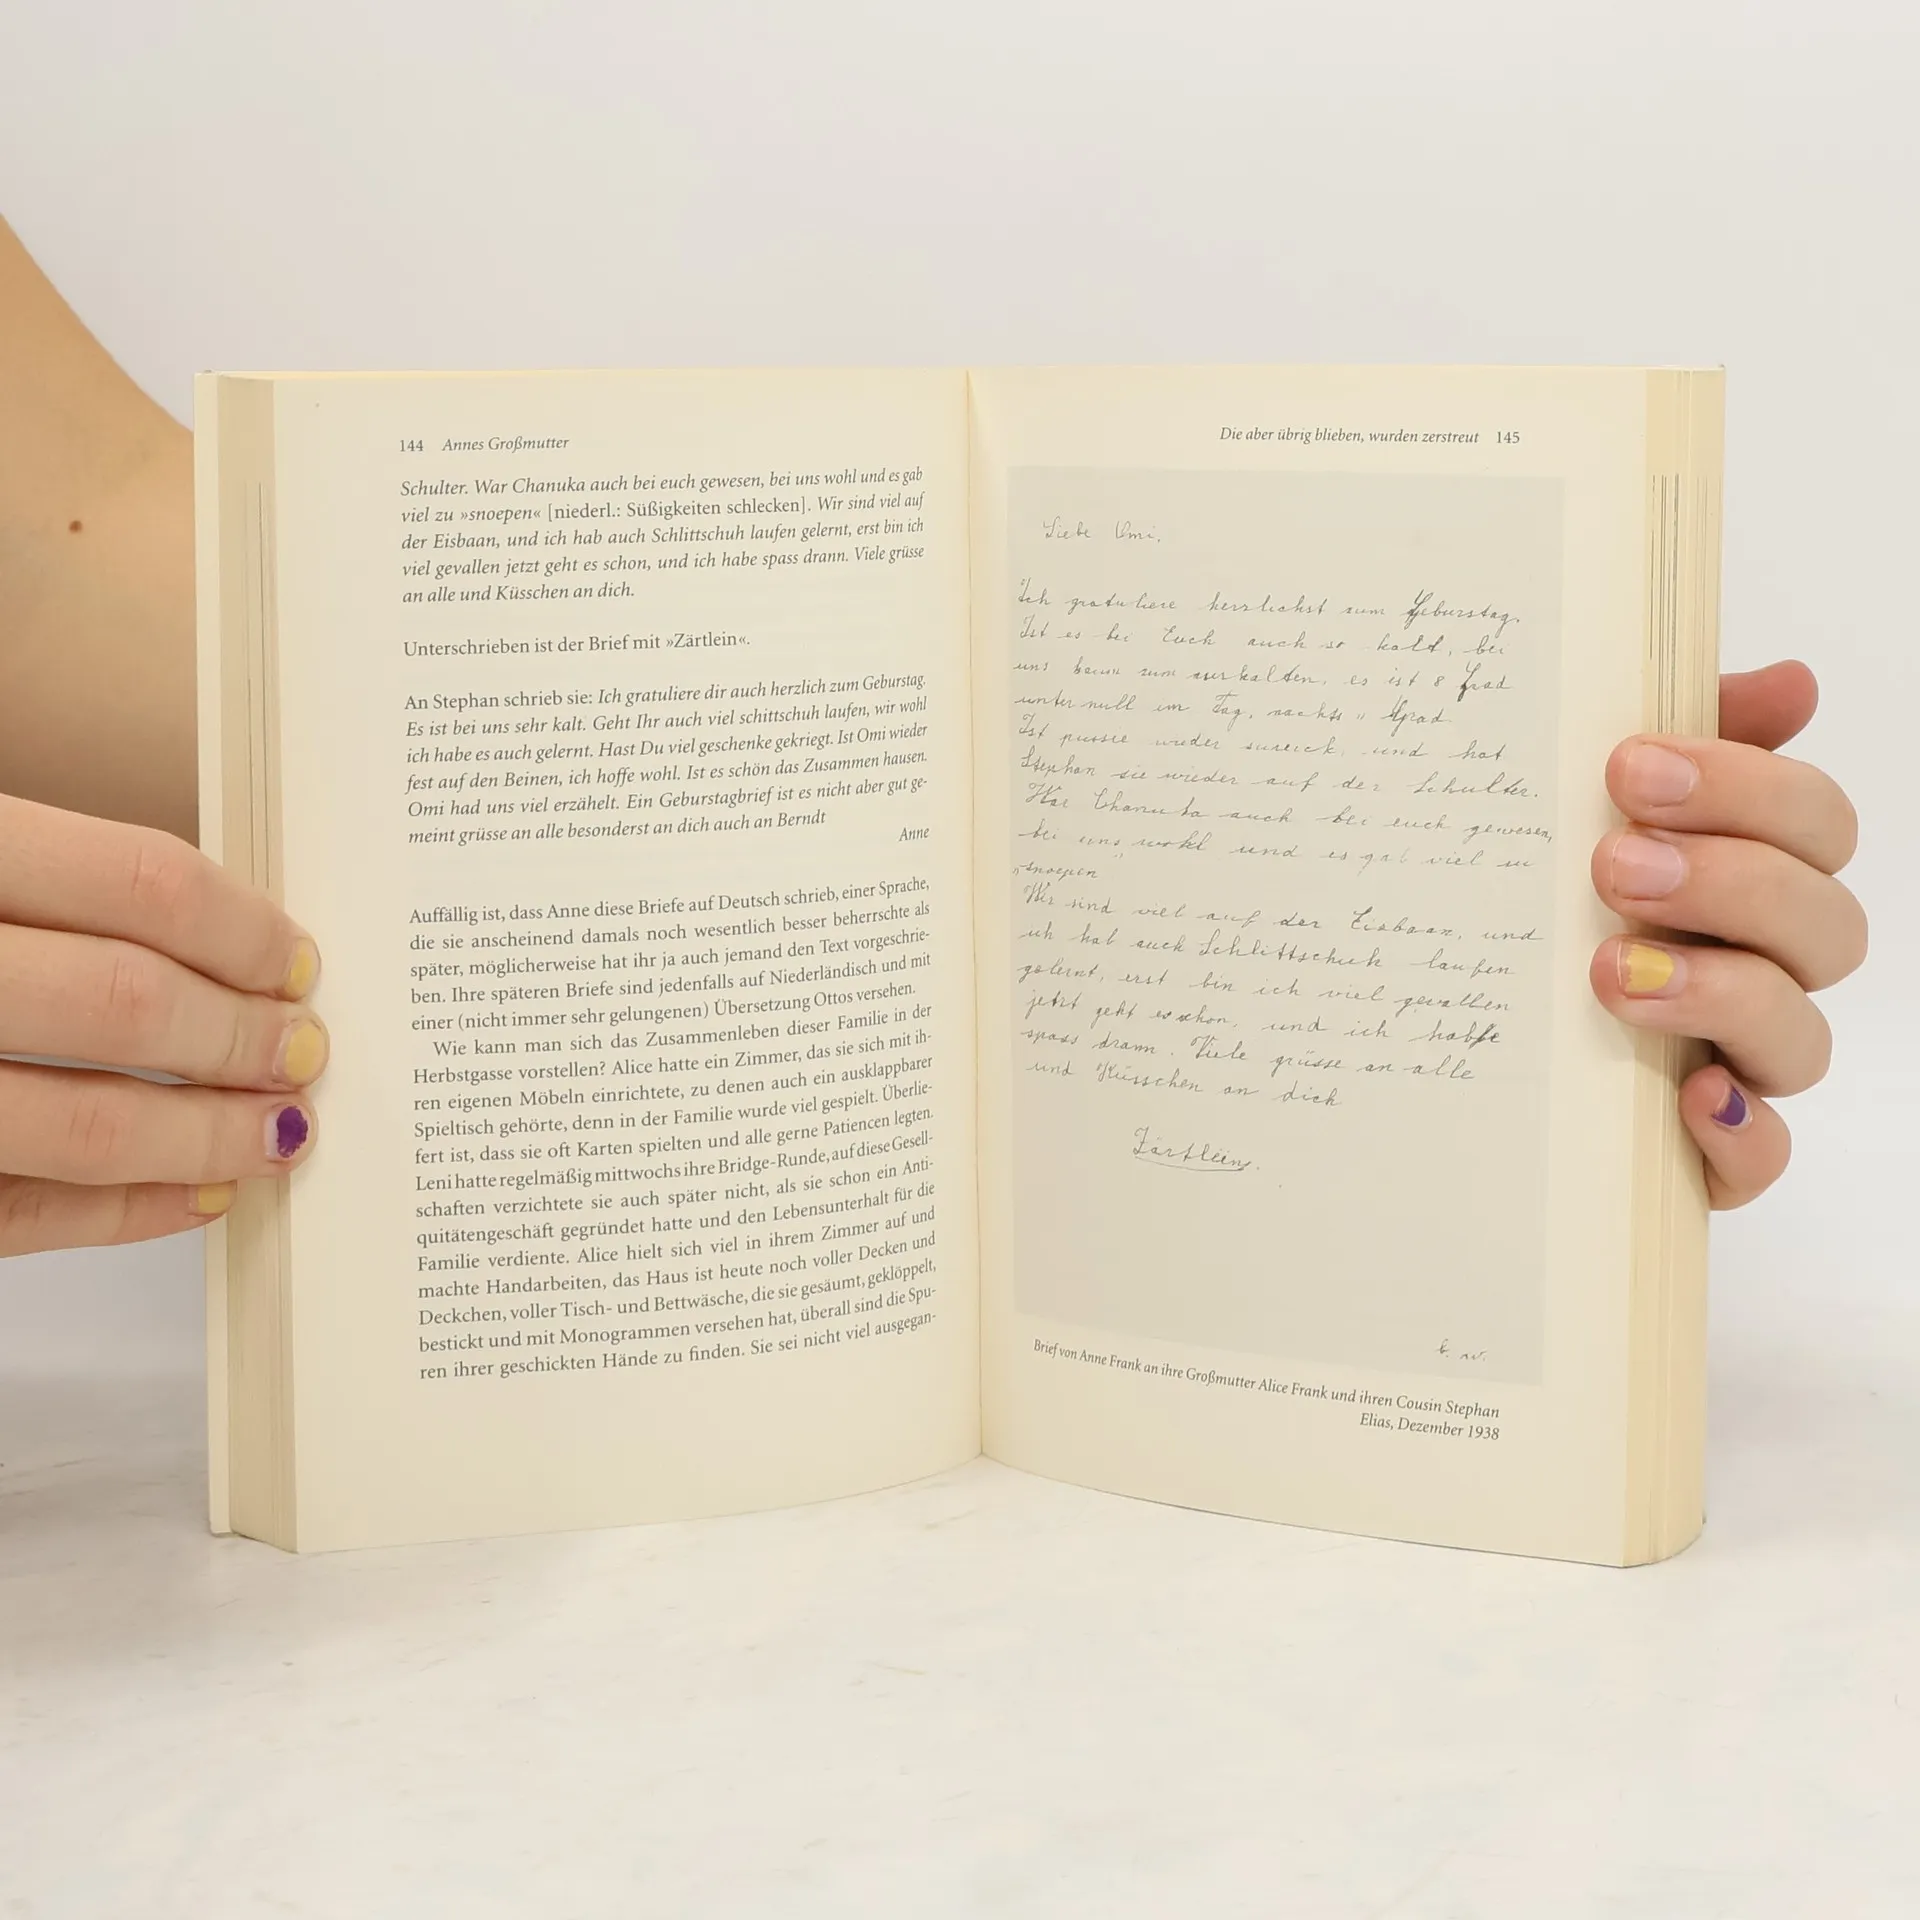 144 Annes Großmutter
Schulter. War Chanuka auch bei euch gewesen, bei uns wohl und es gab
viel zu »snoepen« [niederl.: Süßigkeiten schlecken]. Wir sind viel auf
der Eisbaan, und ich hab auch Schlittschuh laufen gelernt, erst bin ich
viel gevallen jetzt geht es schon, und ich habe spass drann. Viele grüsse
an alle und Küsschen an dich.
Unterschrieben ist der Brief mit »Zärtlein«.
An Stephan schrieb sie: Ich gratuliere dir auch herzlich zum Geburstag.
Es ist bei uns sehr kalt. Geht Ihr auch viel schittschuh laufen, wir wohl
ich habe es auch gelernt. Hast Du viel geschenke gekriegt. Ist Omi wieder
fest auf den Beinen, ich hoffe wohl. Ist es schön das Zusammen hausen.
Omi had uns viel erzähelt. Ein Geburstagbrief ist es nicht aber gut ge-
meint grüsse an alle besonderst an dich auch an Berndt
Anne
Auffällig ist, dass Anne diese Briefe auf Deutsch schrieb, einer Sprache,
die sie anscheinend damals noch wesentlich besser beherrschte als
später, möglicherweise hat ihr ja auch jemand den Text vorgeschrie-
ben. Ihre späteren Briefe sind jedenfalls auf Niederländisch und mit
einer (nicht immer sehr gelungenen) Übersetzung Ottos versehen.
Wie kann man sich das Zusammenleben dieser Familie in der
Herbstgasse vorstellen? Alice hatte ein Zimmer, das sie sich mit ih-
ren eigenen Möbeln einrichtete, zu denen auch ein ausklappbarer
Spieltisch gehörte, denn in der Familie wurde viel gespielt. Überlie-
fert ist, dass sie oft Karten spielten und alle gerne Patiencen legten.
Leni hatte regelmäßig mittwochs ihre Bridge-Runde, auf diese Gesell-
schaften verzichtete sie auch später nicht, als sie schon ein Anti-
quitätengeschäft gegründet hatte und den Lebensunterhalt für die
Familie verdiente. Alice hielt sich viel in ihrem Zimmer auf und
machte Handarbeiten, das Haus ist heute noch voller Decken und
Deckchen, voller Tisch- und Bettwäsche, die sie gesäumt, geklöppelt,
bestickt und mit Monogrammen versehen hat, überall sind die Spu-
ren ihrer geschickten Hände zu finden. Sie sei nicht viel ausgegan-
Die aber übrig blieben, wurden zerstreut 145
Liebe Omi,
Ich gratuliere herzlichst zum Geburstag.
Ist es bei Euch auch so kalt, bei
uns zum es ist 8 Grad
unter null im Tag, nachts 11 Grad.
Ist wieder zureick, und hat
Stephan sie wieder auf der Schulter.
War Chanuka auch bei euch gewesen,
bei uns wohl und es gab viel zu
"snoepen"
Wir sind viel auf der Eisbaan, und
ich hab auch Schlittschuh laufen
gelernt, erst bin ich viel gevallen
jetzt geht es schon, und ich habe
spass drann. Viele grüsse an alle
und Küsschen an dich
Zärtlein.
b. w.
Brief von Anne Frank an ihre Großmutter Alice Frank und ihren Cousin Stephan
Elias, Dezember 1938